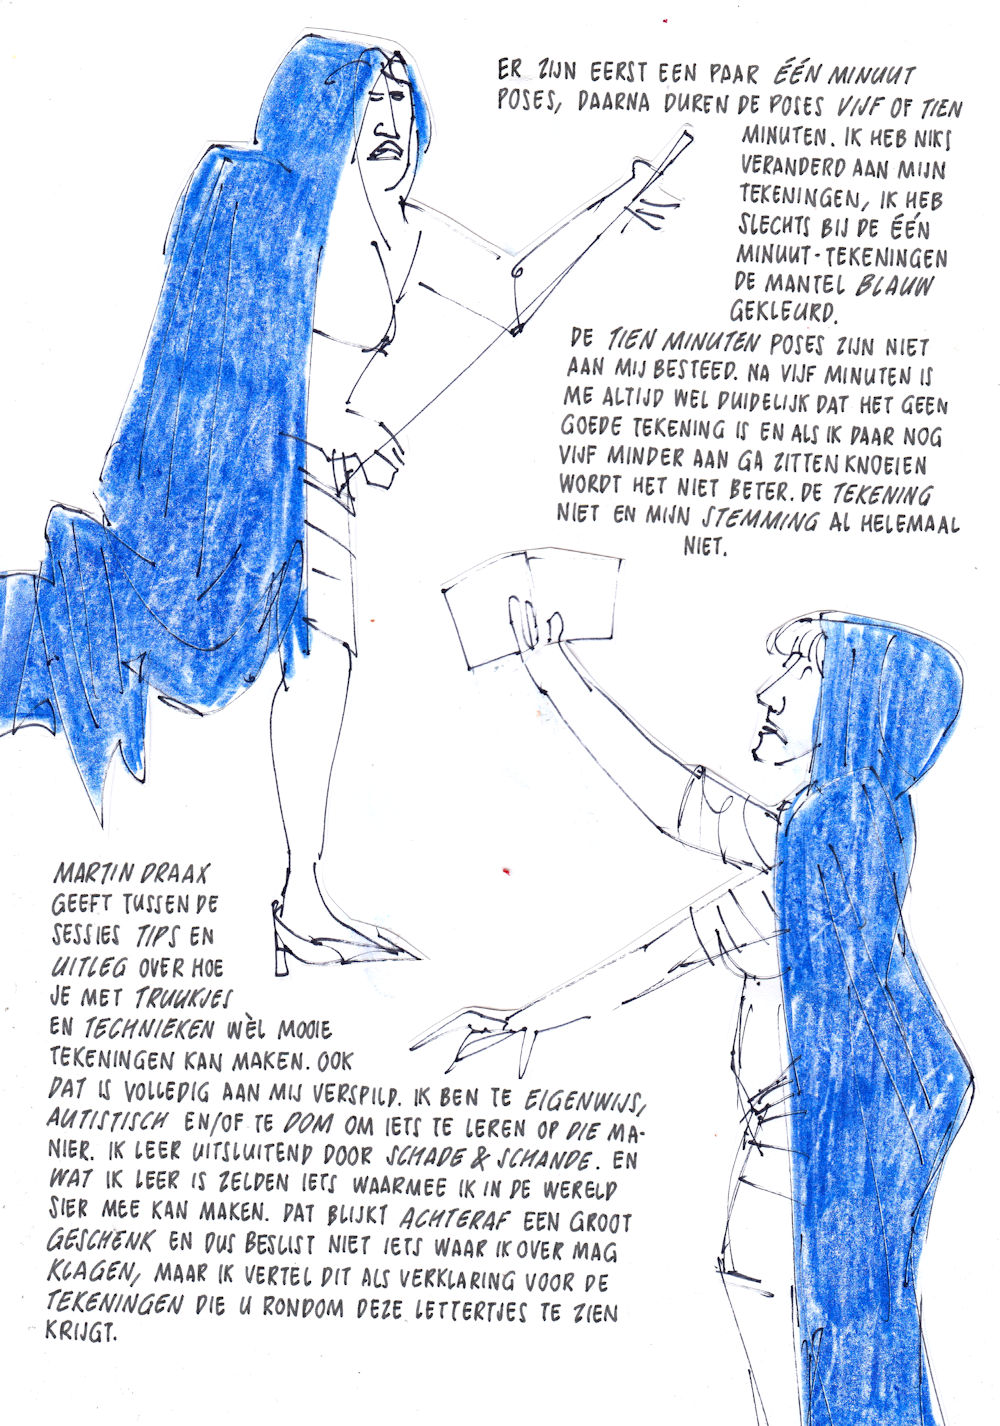 ER ZIJN EERST EEN PAAR ÉÉN MINUUT
POSES, DAARNA DUREN DE POSES VIJF OF TIEN
MINUTEN. IK HEB NIKS
VERANDERD AAN MIJN
TEKENINGEN, IK HEB
SLECHTS BIJ DE ÉÉN
MINUUT-TEKENINGEN
DE MANTEL BLAUW
GEKLEURD.
DE TIEN MINUTEN POSES ZIJN NIET
AAN MIJ BESTEED. NA VIJF MINUTEN IS
ME ALTIJD WEL DUIDELIJK DAT HET GEEN
GOEDE TEKENING IS EN ALS IK DAAR NOG
VIJF MINDER AAN GA ZITTEN KNOEIEN
WORDT HET NIET BETER. DE TEKENING
NIET EN MIJN STEMMING AL HELEMAAL
NIET.
MARTIN DRAAX
GEEFT TUSSEN DE
SESSIES TIPS EN
UITLEG OVER HOE
JE MET TRUUKJES
EN TECHNIEKEN WÈL MOOIE
TEKENINGEN KAN MAKEN. OOK
DAT IS VOLLEDIG AAN MIJ VERSPILD. IK BEN TE EIGENWIJS,
AUTISTISCH EN/OF TE DOM OM IETS TE LEREN OP DIE MA-
NIER. IK LEER UITSLUITEND DOOR SCHADE & SCHANDE. EN
WAT IK LEER IS ZELDEN IETS WAARMEE IK IN DE WERELD
SIER MEE KAN MAKEN. DAT BLIJKT ACHTERAF EEN GROOT
GESCHENK EN DUS BESLIST NIET IETS WAAR IK OVER MAG
KLAGEN, MAAR IK VERTEL DIT ALS VERKLARING VOOR DE
TEKENINGEN DIE U RONDOM DEZE LETTERTJES TE ZIEN
KRIJGT.